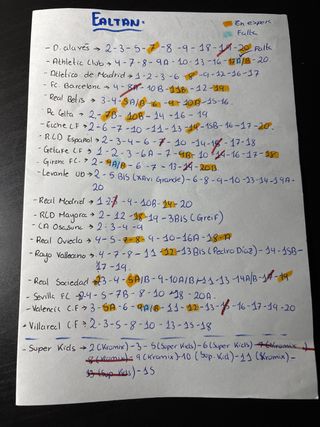 FALTAN.
En espera
Falta
- D. alavés → 2-3-5-7-8-9-18-19-20 Falta
- Athletic Club → 4-7-8-9A-10-13-16-17A/B-20
- Atletico de Madrid → 1-2-3-6-8-9-12-16-17
- FC Barcelona → 4-8A-10B-11B-12-19
- Real Betis → 3-4-5A/A-6-9-10A-15-16.
- Rc Celta → 2-7B-10B-14-16-19
- Elche C.F → 2-6-7-10-11-13-14-15B-16-17-20.
- R.C.D Español → 2-3-4-6-7-10-14-15-17-18
- Getafe C.F → 1-2-3-6A-7-9B-10-14-16-17-18
- Girona FC. → 2-4A/B-6-7-13-14-20B
- Levante UD → 2-5 BIS (Xavi Grande)-6-8-9-10-13-14-19A-
20
- Real Madrid → 1-2-4-10B-14-20
- RCD Mayorca → 2-12-18-19-3BIS (Greif)
- CA Osasuna → 2-3-4-9
- Real Oviedo → 4-5-7-8-9-10-16A-18-19
- Rayo Vallecano → 4-7-8-11-12-13Bis (Pedro Díaz)-14-15B-
-17-19.
- Real Sociedad → 2-3-4-5A/B-9-10A/B-11-13-14A/B-17-19
- Sevilla FC → 2-4-5-7B-8-10-18-20A.
- Valencia C.F → 3-5A-6-9A/B-11-12-13-15-16-17-19-20
- Villareal C.F → 2-3-5-8-10-13-15-18
- Super Kids → 2 (Kromix)-3-5 (Super Kids)-6 (Super Kids)-7 (Kromix)
8 (Kromix)-9 (Kromix)-10 (Sup. Kid)-11 (Kromix)-
13 (Sup Kids)-15